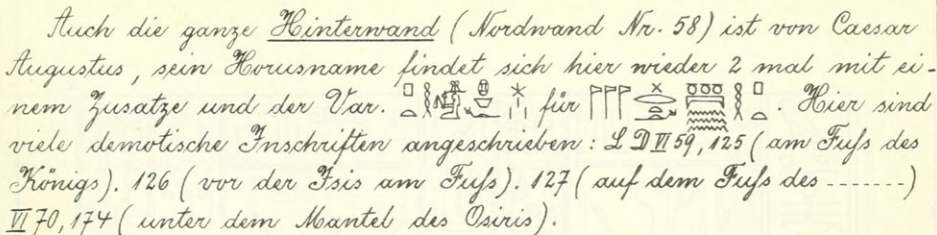 Auch die ganze Hinterwand (Nordwand Nr. 58) ist von Caesar
Augustus, sein Horusname findet sich hier wieder 2 mal mit ei-
nem Zusatze und der Var. für . Hier sind
viele demotische Inschriften angeschrieben: L D VI 59, 125 (am Fuſs des
Königs). 126 (vor der Isis am Fuſs). 127 (auf dem Fuſs des --------)
VI 70, 174 (unter dem Mantel des Osiris).